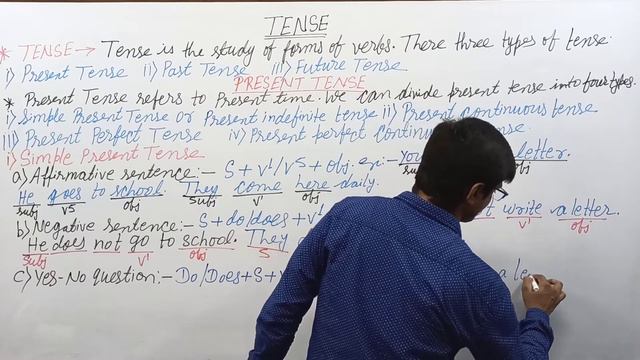 TENSE
* TENSE → Tense is the study of forms of verbs. There three types of tense.
i) Present Tense ii) Past Tense iii) Future Tense
PRESENT TENSE
* Present Tense refers to Present time. We can divide present tense into four types.
i) Simple Present Tense or Present indefinite tense ii) Present continuous tense
iii) Present Perfect Tense iv) Present perfect contin tense.
i) Simple Present Tense
a) Affirmative sentence:- S + V¹/V⁵ + Obj. ex:- You letter.
He goes to school. They come here daily.
Subj V⁵ obj Subj V¹ obj
b) Negative sentence:- S + do/does + V¹ write a letter.
V¹ obj
He does not go to school. They
Subj V¹ obj S
c) Yes-No question:- Do/Does + S + a le